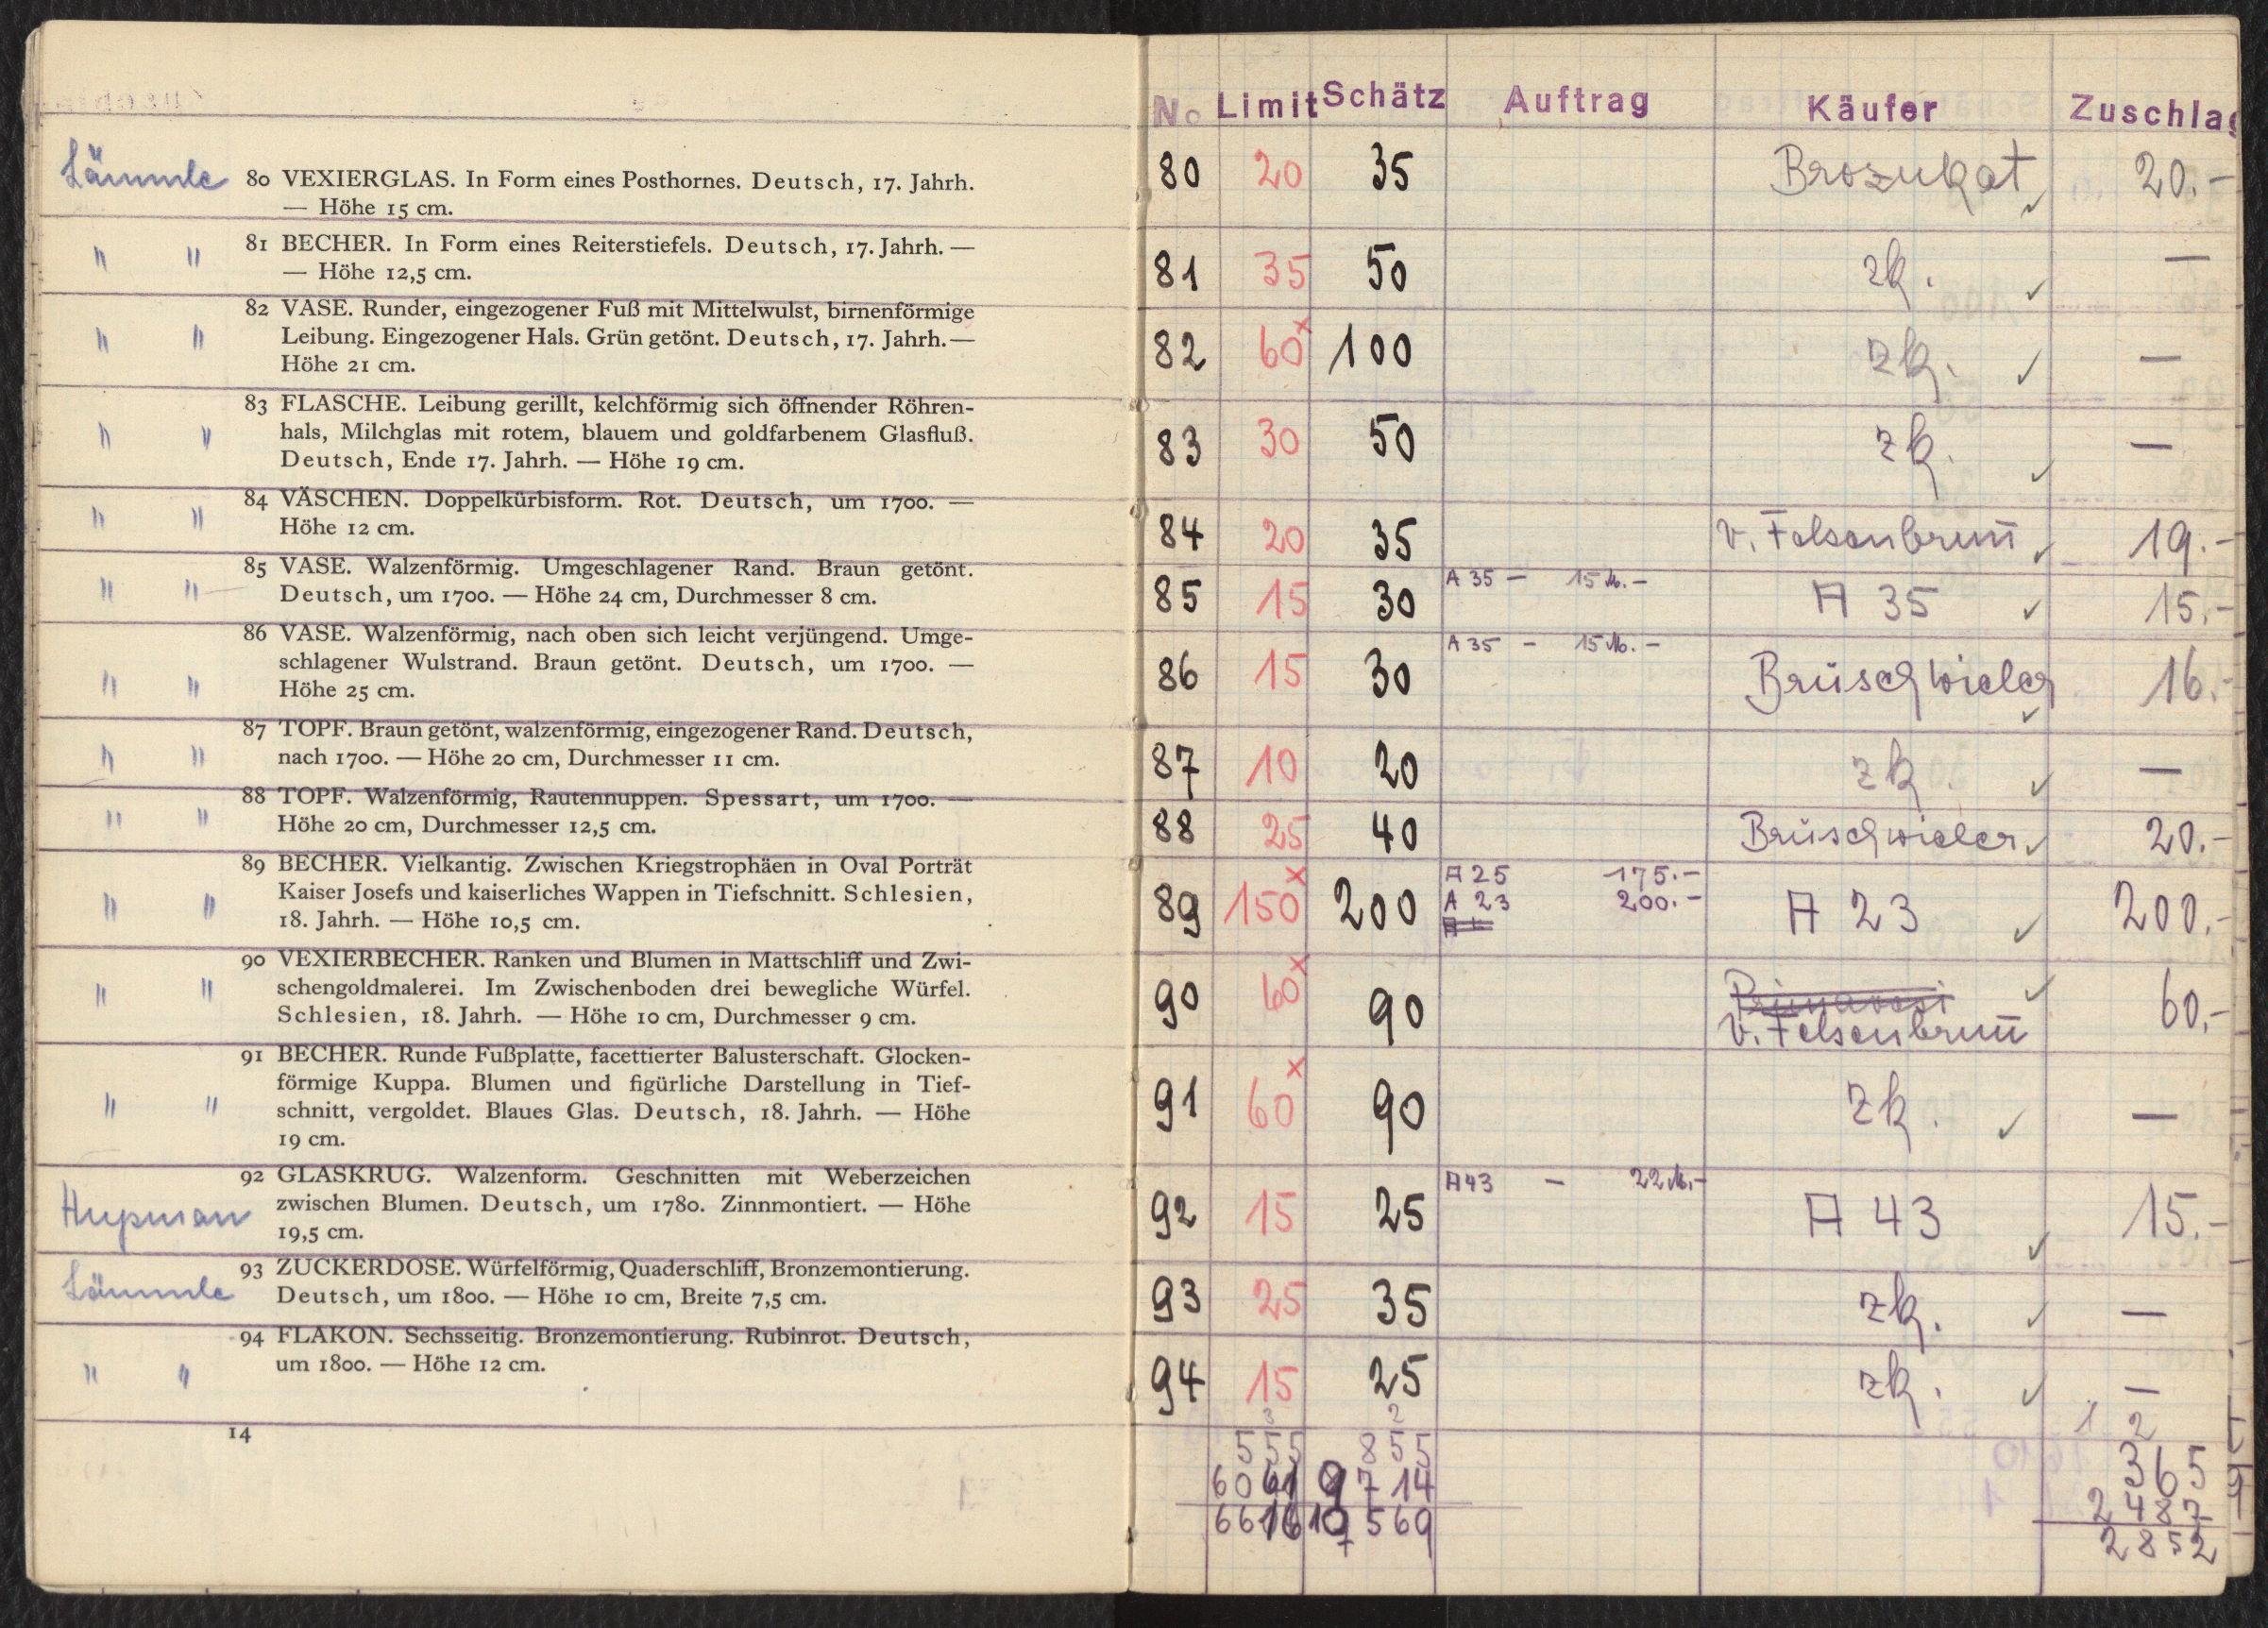 Lämmle 80 VEXIERGLAS. In Form eines Posthornes. Deutsch, 17. Jahrh.
— Höhe 15 cm.
" " 81 BECHER. In Form eines Reiterstiefels. Deutsch, 17. Jahrh. —
— Höhe 12,5 cm.
82 VASE. Runder, eingezogener Fuß mit Mittelwulst, birnenförmige
" " Leibung. Eingezogener Hals. Grün getönt. Deutsch, 17. Jahrh. —
Höhe 21 cm.
83 FLASCHE. Leibung gerillt, kelchförmig sich öffnender Röhren-
" " hals, Milchglas mit rotem, blauem und goldfarbenem Glasfluß.
Deutsch, Ende 17. Jahrh. — Höhe 19 cm.
84 VÄSCHEN. Doppelkürbisform. Rot. Deutsch, um 1700. —
" " Höhe 12 cm.
85 VASE. Walzenförmig. Umgeschlagener Rand. Braun getönt.
" " Deutsch, um 1700. — Höhe 24 cm, Durchmesser 8 cm.
86 VASE. Walzenförmig, nach oben sich leicht verjüngend. Umge-
schlagener Wulstrand. Braun getönt. Deutsch, um 1700. —
" " Höhe 25 cm.
87 TOPF. Braun getönt, walzenförmig, eingezogener Rand. Deutsch,
" " nach 1700. — Höhe 20 cm, Durchmesser 11 cm.
88 TOPF. Walzenförmig, Rautennuppen. Spessart, um 1700. —
" " Höhe 20 cm, Durchmesser 12,5 cm.
89 BECHER. Vielkantig. Zwischen Kriegstrophäen in Oval Porträt
Kaiser Josefs und kaiserliches Wappen in Tiefschnitt. Schlesien,
" " 18. Jahrh. — Höhe 10,5 cm.
90 VEXIERBECHER. Ranken und Blumen in Mattschliff und Zwi-
" " schengoldmalerei. Im Zwischenboden drei bewegliche Würfel.
Schlesien, 18. Jahrh. — Höhe 10 cm, Durchmesser 9 cm.
91 BECHER. Runde Fußplatte, facettierter Balusterschaft. Glocken-
förmige Kuppa. Blumen und figürliche Darstellung in Tief-
" " schnitt, vergoldet. Blaues Glas. Deutsch, 18. Jahrh. — Höhe
19 cm.
92 GLASKRUG. Walzenform. Geschnitten mit Weberzeichen
Hupman zwischen Blumen. Deutsch, um 1780. Zinnmontiert. — Höhe
19,5 cm.
93 ZUCKERDOSE. Würfelförmig, Quaderschliff, Bronzemontierung.
Lämmle Deutsch, um 1800. — Höhe 10 cm, Breite 7,5 cm.
94 FLAKON. Sechsseitig. Bronzemontierung. Rubinrot. Deutsch,
" " um 1800. — Höhe 12 cm.
14
No Limit Schätz Auftrag Käufer Zuschlag
80 20 35 Brozukat ✓ 20.-
81 35 50 zk. ✓ —
82 60 x 100 zk. ✓ —
83 30 50 zk. ✓ —
84 20 35 v. Felsenbrun̄ ✓ 19.-
85 15 30 A 35 — 15 M.- A 35 ✓ 15.-
86 15 30 A 35 — 15 M.- Brüschwieler ✓ 16.-
87 10 20 zk. ✓ —
88 25 40 Brüschwieler ✓ 20.-
89 150 x 200 A 25 175.- A 23 ✓ 200.-
A 23 200.-
90 60 x 90 Primavesi ✓ 60.-
v. Felsenbrun̄
91 60 x 90 zk. ✓ —
92 15 25 A 43 — 22 M.- A 43 ✓ 15.-
93 25 35 zk. ✓ —
94 15 25 zk. ✓ —
3 2 1 2
555 855 365
6061 9714 2487
6616 10569 2852